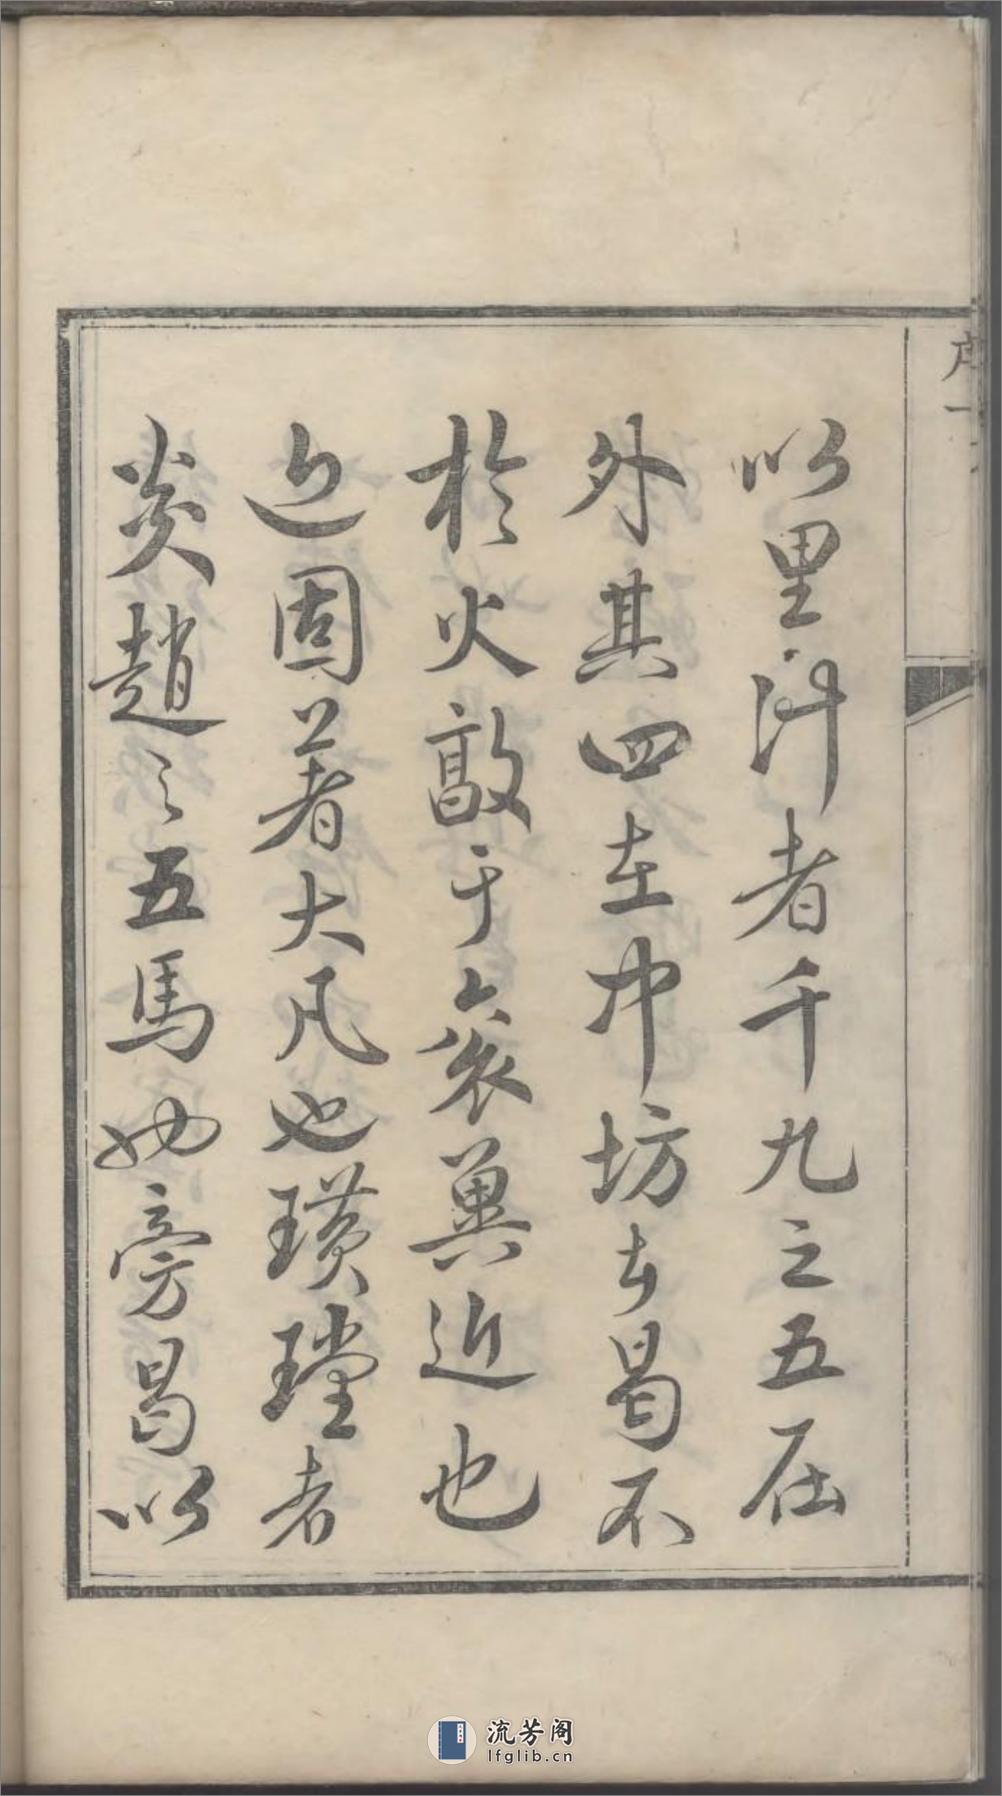 序一
以里計者千九之五在
外其四在中坊古曷不
於火敵于袞冀近也
近固著大凡也璜瑝者
炎趙之五馬也旁曷以
流芳阁
lfglib.cn